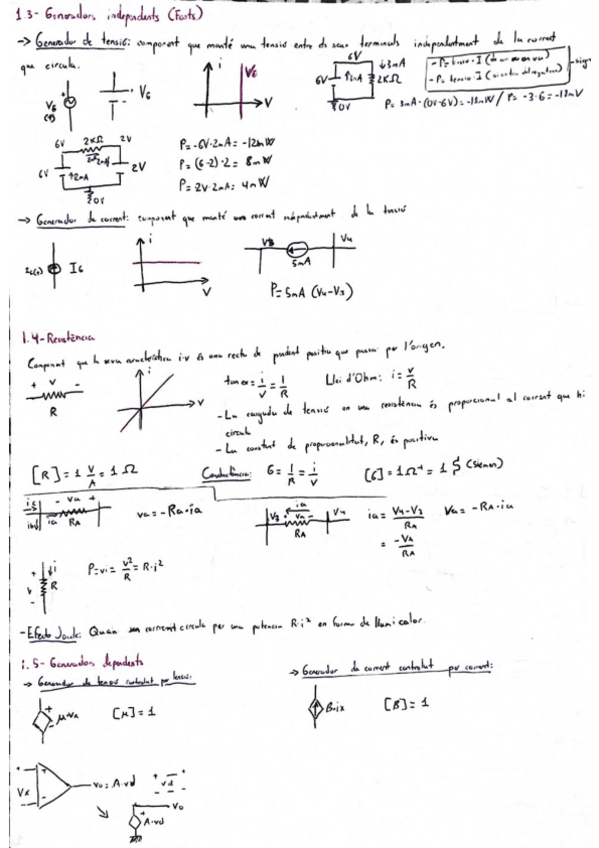 1.3- Generadors independents (Fonts)
→ Generador de tensió: component que manté una tensió entre els seus terminals independentment de la corrent
que circula.
6V
3mA
2KΩ
6V
0V
V6
i
V
V6
P= 3mA·(0V-6V)=-18mW / P= -3·6=-18mW
6V 2KΩ 2V
6V 2mA 2V
0V
P= -6V·2mA= -12mW
P= (6-2)·2= 8mW
P= 2V·2mA= 4mW
→ Generador de corrent: component que manté una corrent independentment de la tensió
I6
i
V
V3 V4
5mA
P= 5mA (V4-V3)
1.4- Resistència
Component que la seva característica i-v és una recta de pendent positiu que passa per l'origen.
+ v -
R
i
V
tan α= i/v = 1/R Llei d'Ohm: i= v/R
- La caiguda de tensió en una resistència és proporcional al corrent que hi
circula
- La constant de proporcionalitat, R, és positiva
[R]= 1 V/A = 1 Ω Conductància: G= 1/R = i/v [G]= 1Ω⁻¹ = 1 S (Siemens)
- va +
ia RA
va= -Ra·ia
V3 ia V4
va -
RA
ia= V4-V3/RA Va= -RA·ia
= -VA/RA
+ i
v R
-
P=vi= v²/R = R·i²
- Efecte Joule: Quan un corrent circula per una potencia R·i² en forma de llum i calor.
1.5- Generadors dependents
→ Generador de tensió controlat per tensió:
→ Generador de corrent controlat per corrent:
μ·vx [μ]=1
β·ix [β]= 1
Vx + -
vo= A·vd
+ vd -
Vo
A·vd